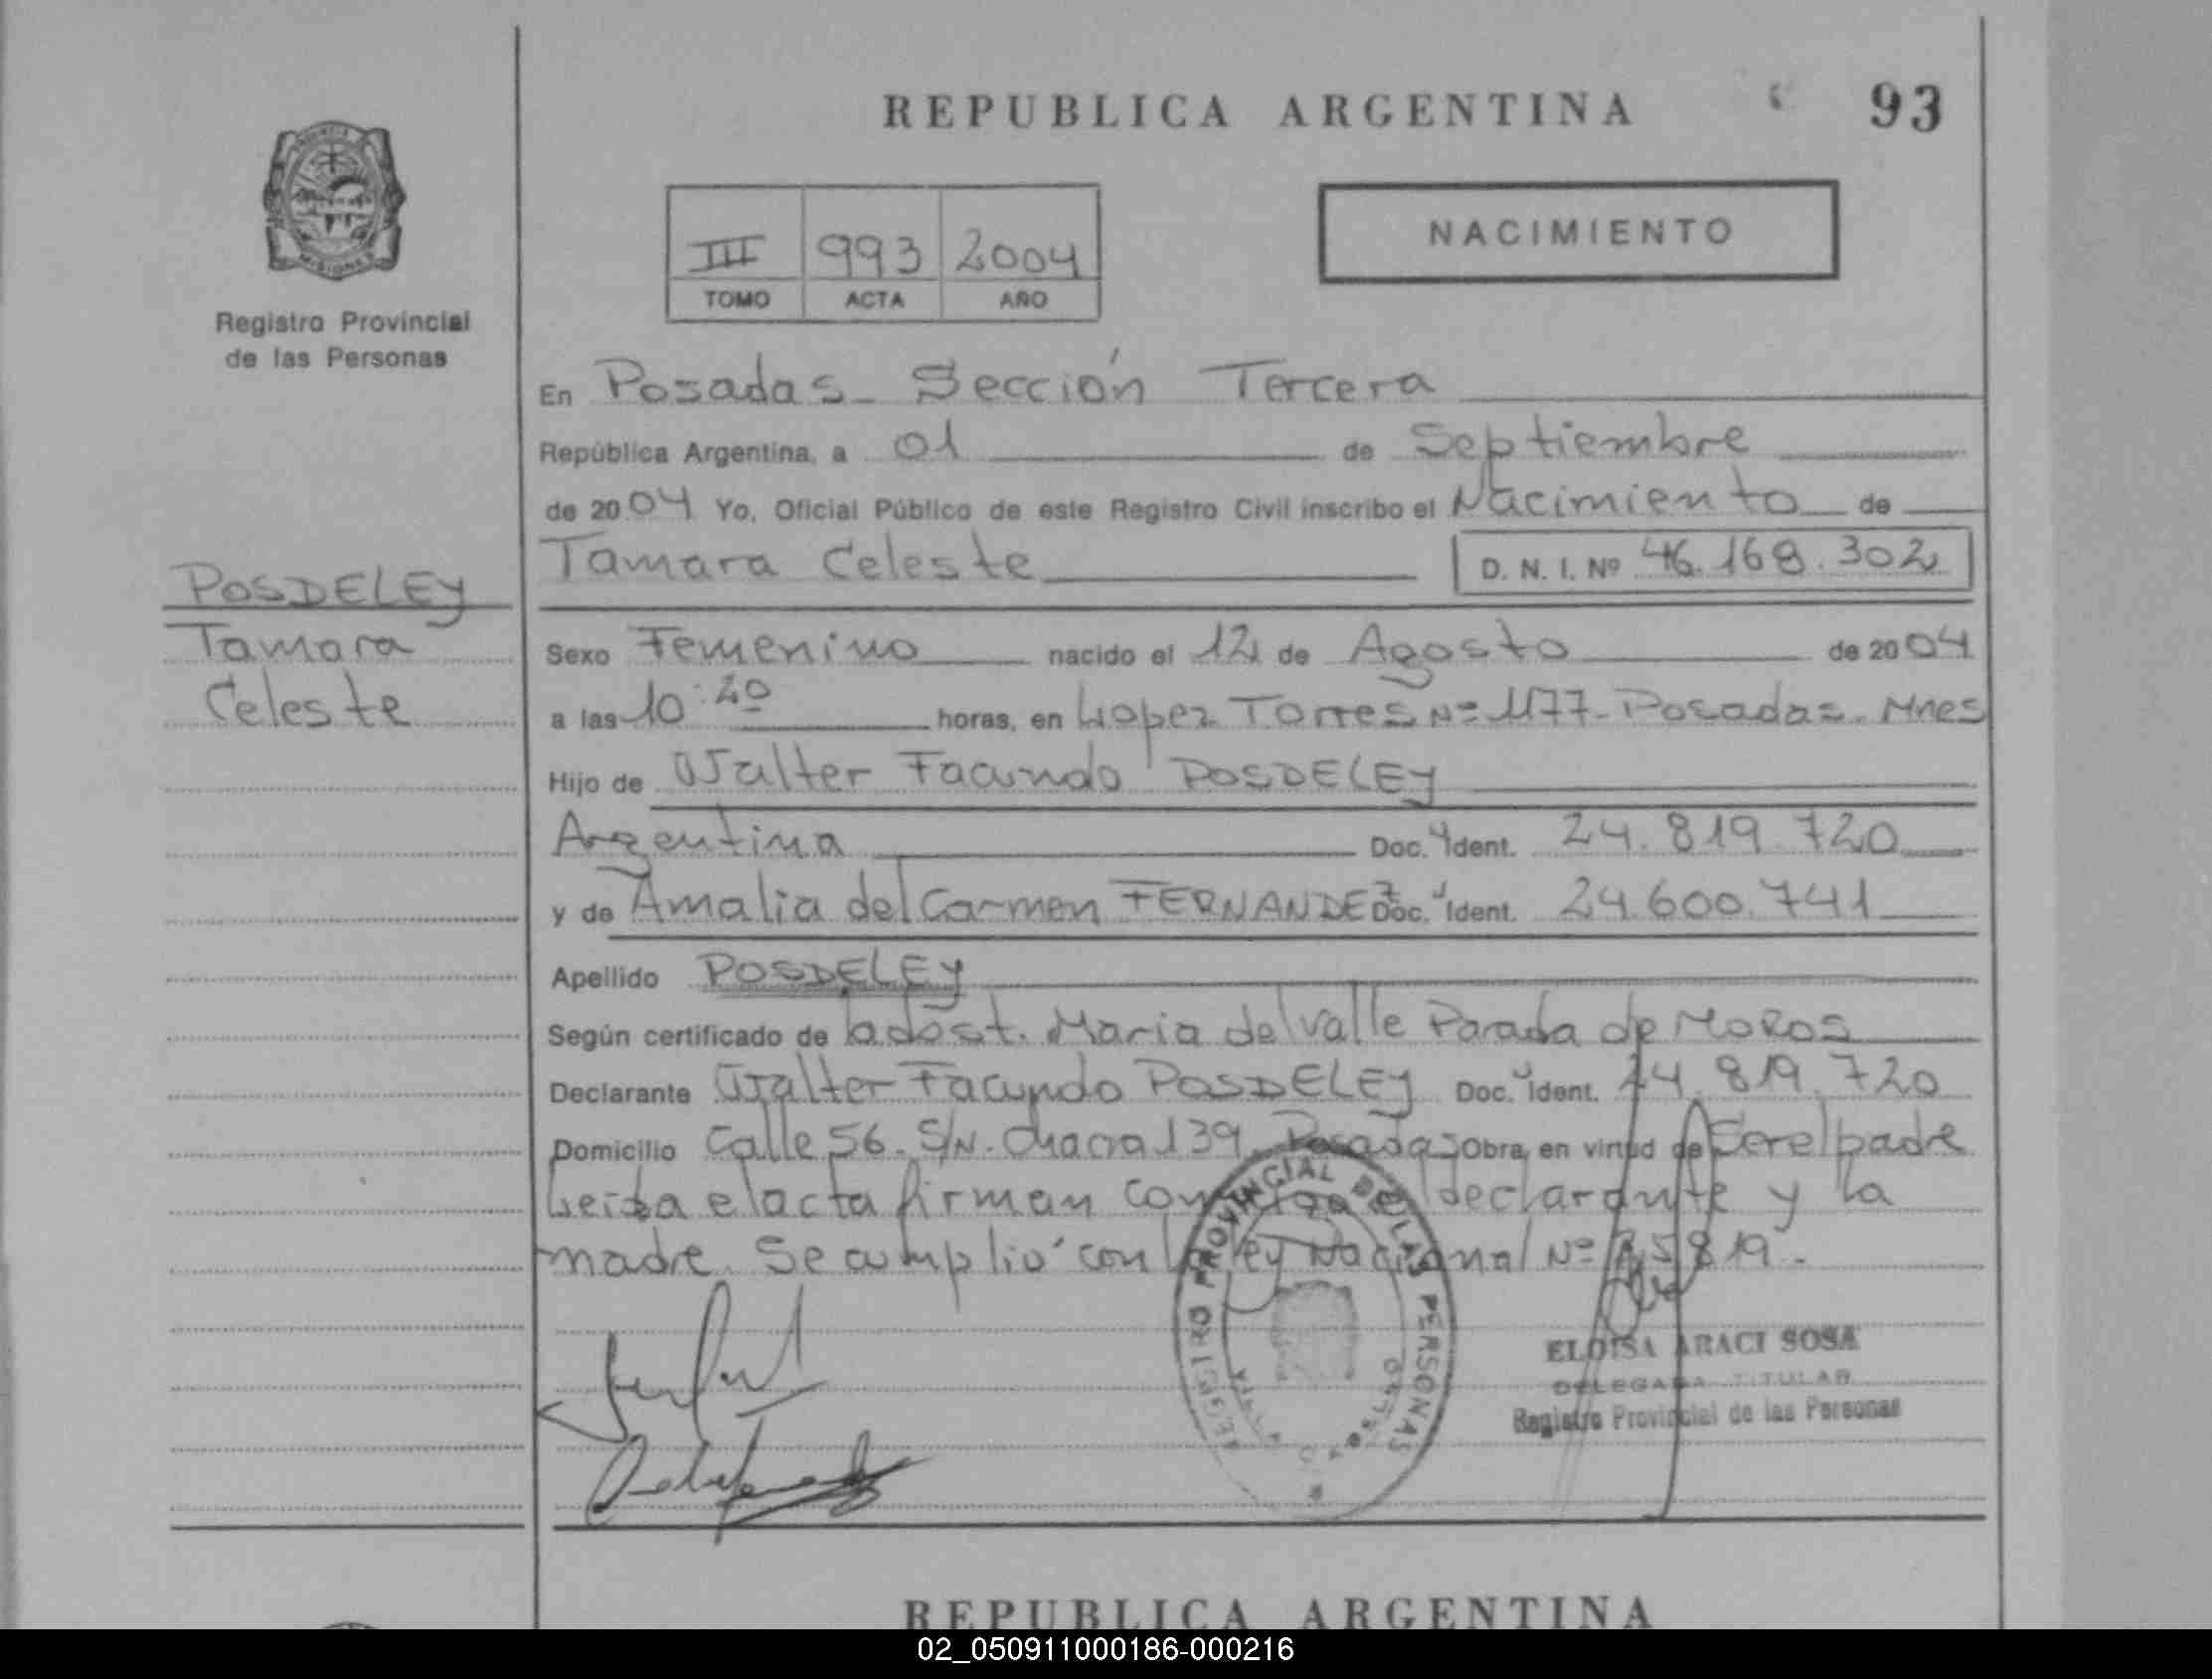 REPUBLICA ARGENTINA 93
NACIMIENTO
III 993 2004
TOMO ACTA AÑO
MISIONES
Registro Provincial
de las Personas
En Posadas - Sección Tercera
República Argentina, a 01 de Septiembre
de 2004 Yo, Oficial Público de este Registro Civil inscribo el Nacimiento de
Tamara Celeste D. N. I. Nº 46.168.302
POSDELEY
Tamara
Celeste
Sexo Femenino nacido el 12 de Agosto de 2004
a las 10:20 horas, en Lopez Torres Nº 1177 - Posadas. Mnes
Hijo de Walter Facundo POSDELEY
Argentina Doc. Ident. 24.819.720
y de Amalia del Carmen FERNANDEZ Doc. Ident. 24.600.741
Apellido POSDELEY
Según certificado de Obst. Maria del Valle Parada de MOROS
Declarante Walter Facundo POSDELEY Doc. Ident. 24.819.720
Domicilio Calle 56. S/N. Chacra 139. Posadas Obra en virtud de Ser el padre
Leida el acta firman conmigo el declarante y la
madre. Se cumplió con Ley Nacional Nº 25819.
REGISTRO PROVINCIAL DE LAS PERSONAS
ELOISA ARACI SOSA
DELEGADA TITULAR
Registro Provincial de las Personas
REPUBLICA ARGENTINA
02_050911000186-000216